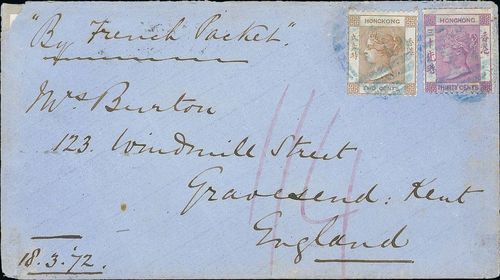 "By French Packet".
HONGKONG
TWO CENTS
HONGKONG
THIRTY CENTS
Mrs Burton
123. Windmill Street
Gravesend. Kent
England
18.3.'72.
1/4